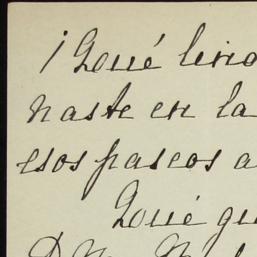 ¡Qué lind
naste en la
esos paseos a
Qué gu